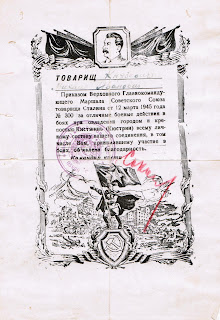 ТОВАРИЩ
Приказом Верховного Главнокоманду-
ющего Маршала Советского Союза
товарища Сталина от 12 марта 1945 года
№ 300 за отличные боевые действия в
боях при овладении городом и кре-
постью Кюстрин (Костшин) всему лич-
ному составу нашего соединения, в том
числе Вам, принимавшему участие в
боях, объявлена благодарность.
Командир части